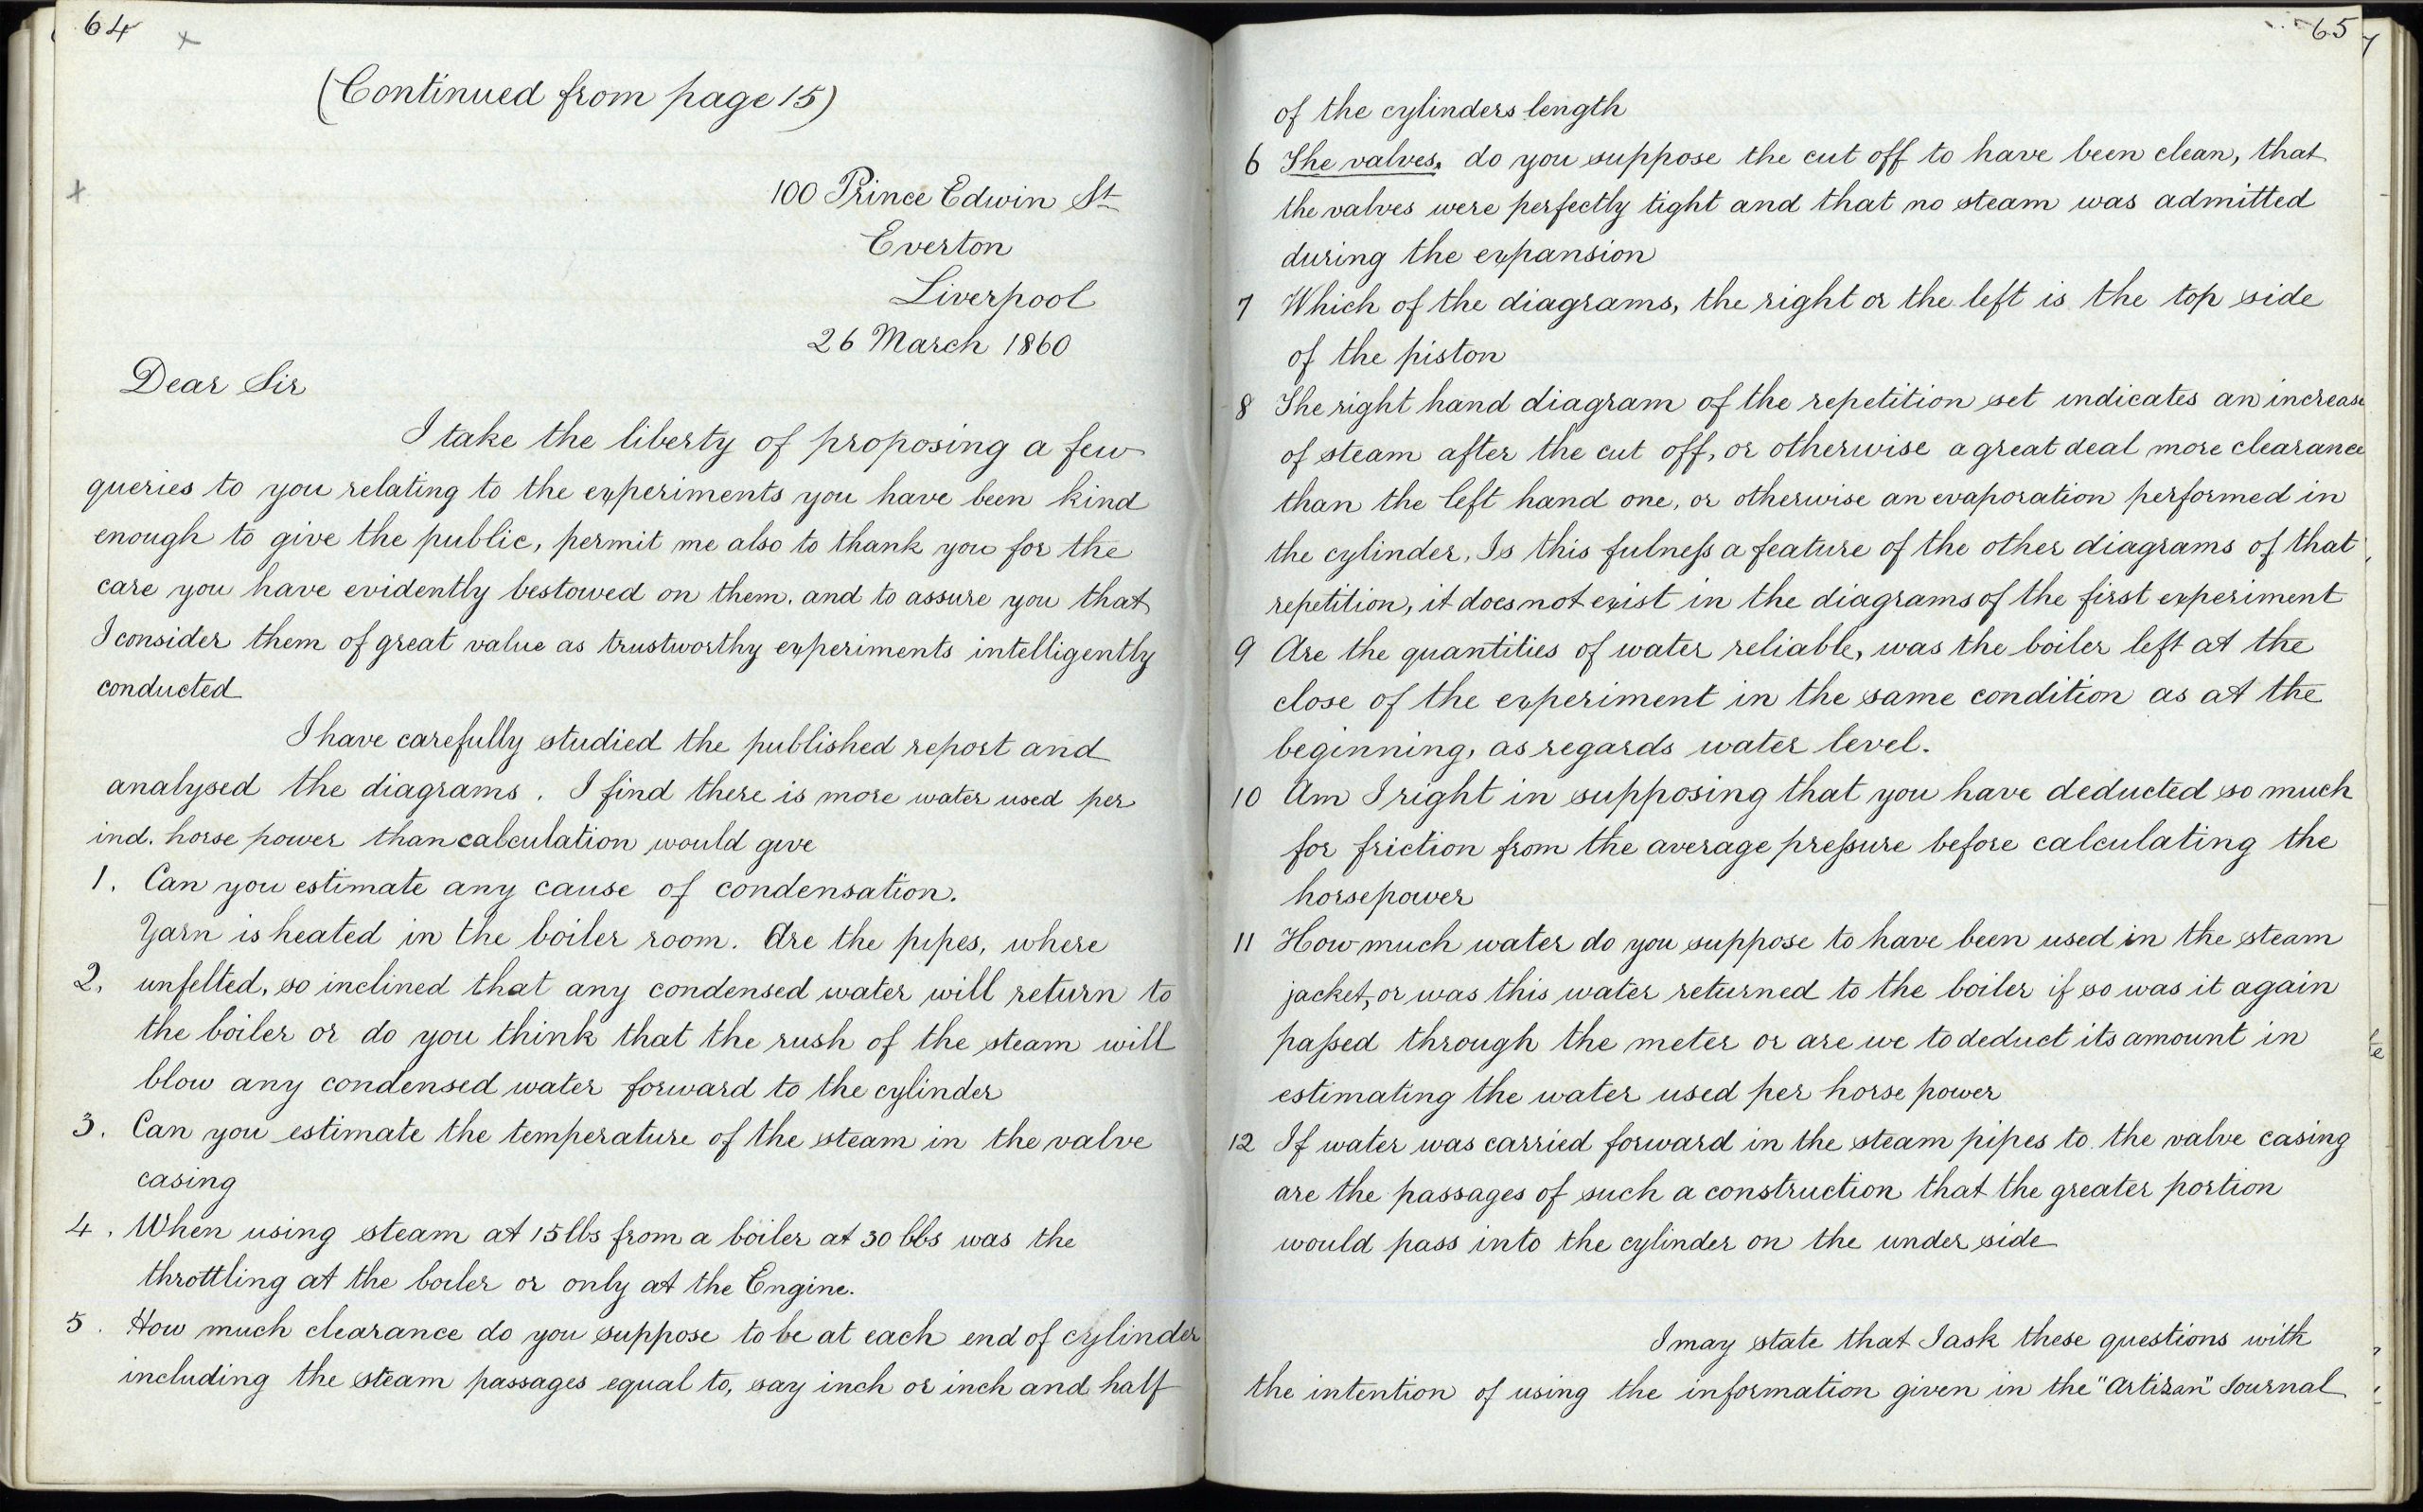 64
(Continued from page 15)
100 Prince Edwin St
Everton
Liverpool
26 March 1860
Dear Sir
I take the liberty of proposing a few
queries to you relating to the experiments you have been kind
enough to give the public, permit me also to thank you for the
care you have evidently bestowed on them. and to assure you that
I consider them of great value as trustworthy experiments intelligently
conducted
I have carefully studied the published report and
analysed the diagrams. I find there is more water used per
ind. horse power than calculation would give
1. Can you estimate any cause of condensation.
Yarn is heated in the boiler room. Are the pipes, where
2. unfelted, so inclined that any condensed water will return to
the boiler or do you think that the rush of the steam will
blow any condensed water forward to the cylinder
3. Can you estimate the temperature of the steam in the valve
casing
4. When using steam at 15 lbs from a boiler at 30 lbs was the
throttling at the boiler or only at the Engine.
5. How much clearance do you suppose to be at each end of cylinder
including the steam passages equal to, say inch or inch and half
65
of the cylinders length
6 The valves. do you suppose the cut off to have been clean, that
the valves were perfectly tight and that no steam was admitted
during the expansion
7 Which of the diagrams, the right or the left is the top side
of the piston
8 The right hand diagram of the repetition set indicates an increase
of steam after the cut off, or otherwise a great deal more clearance
than the left hand one, or otherwise an evaporation performed in
the cylinder. Is this fulneſs a feature of the other diagrams of that
repetition, it does not exist in the diagrams of the first experiment
9 Are the quantities of water reliable, was the boiler left at the
close of the experiment in the same condition as at the
beginning, as regards water level.
10 Am I right in supposing that you have deducted so much
for friction from the average preſsure before calculating the
horsepower
11 How much water do you suppose to have been used in the steam
jacket, or was this water returned to the boiler if so was it again
paſsed through the meter or are we to deduct its amount in
estimating the water used per horse power
12 If water was carried forward in the steam pipes to the valve casing
are the passages of such a construction that the greater portion
would pass into the cylinder on the under side
I may state that I ask these questions with
the intention of using the information given in the "Artizan" Journal